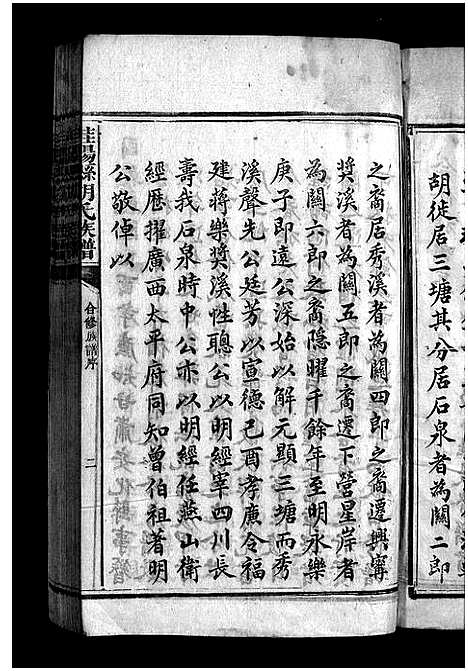 胡徒居三塘其分居石泉者為關二郎
之裔居秀溪者為關四郎之裔遷興寧
獎溪者為關五郎之裔遷下營星岸者
為關六郎之裔隱曜千餘年至明永樂
庚子即遠公深始以解元顯三塘而秀
溪聲先公廷芳以宣德己酉孝廉令福
建蔣樂獎溪性聰公以明經宰四川長
壽我石泉時中公亦以明經任燕山衛
經歷擢廣西太平府同知曾伯祖著明
公敬倬以
桂陽縣胡氏族譜
合修族譜序
二